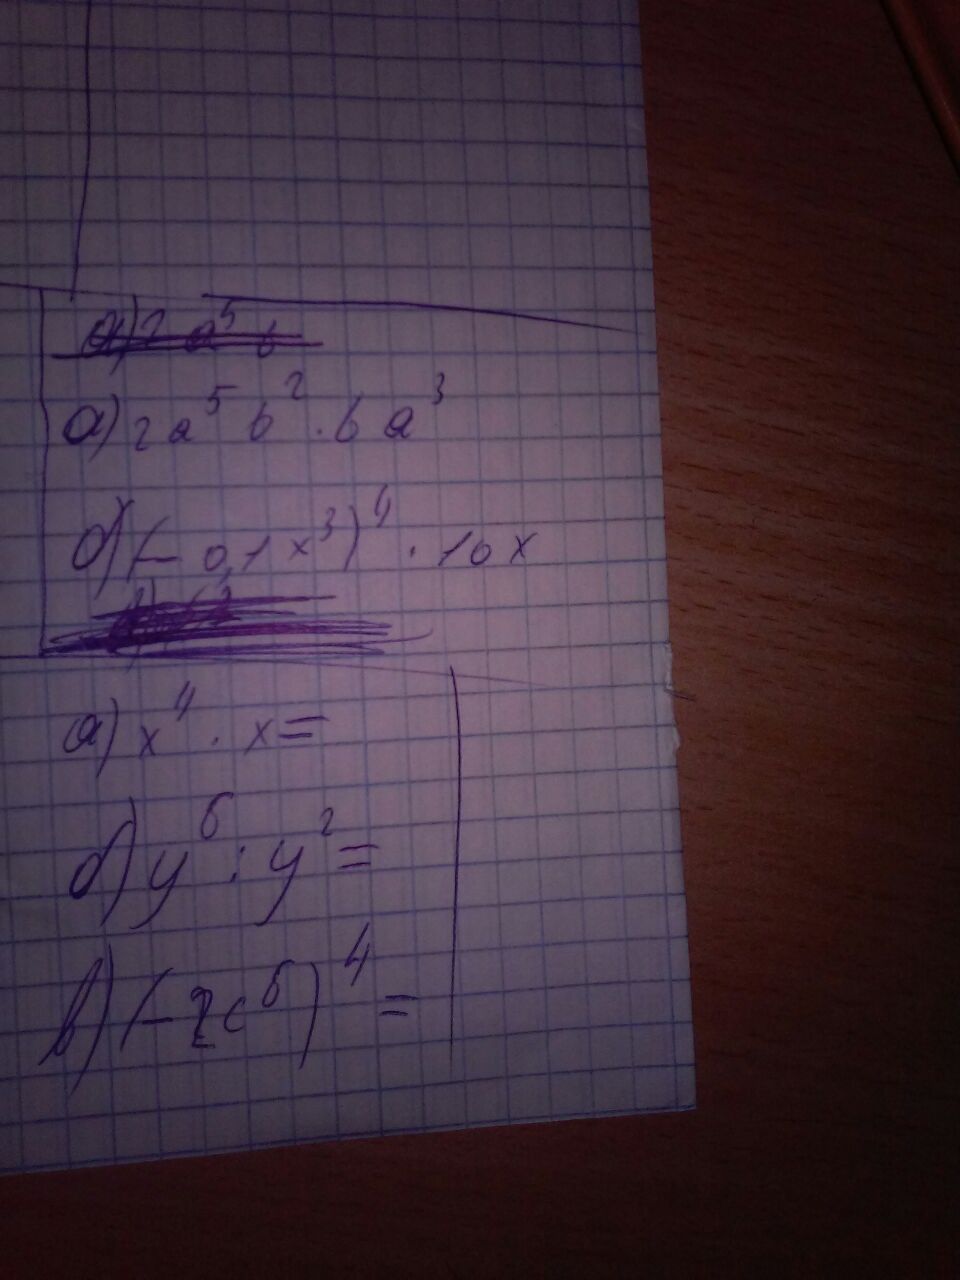 а) 2a⁵ b
а) 2a⁵ b² · b a³
б) (- 0,1 x³)⁴ · 10 x
а) x⁴ · x =
б) y⁶ : y² =
в) (- 2c⁶)⁴ =